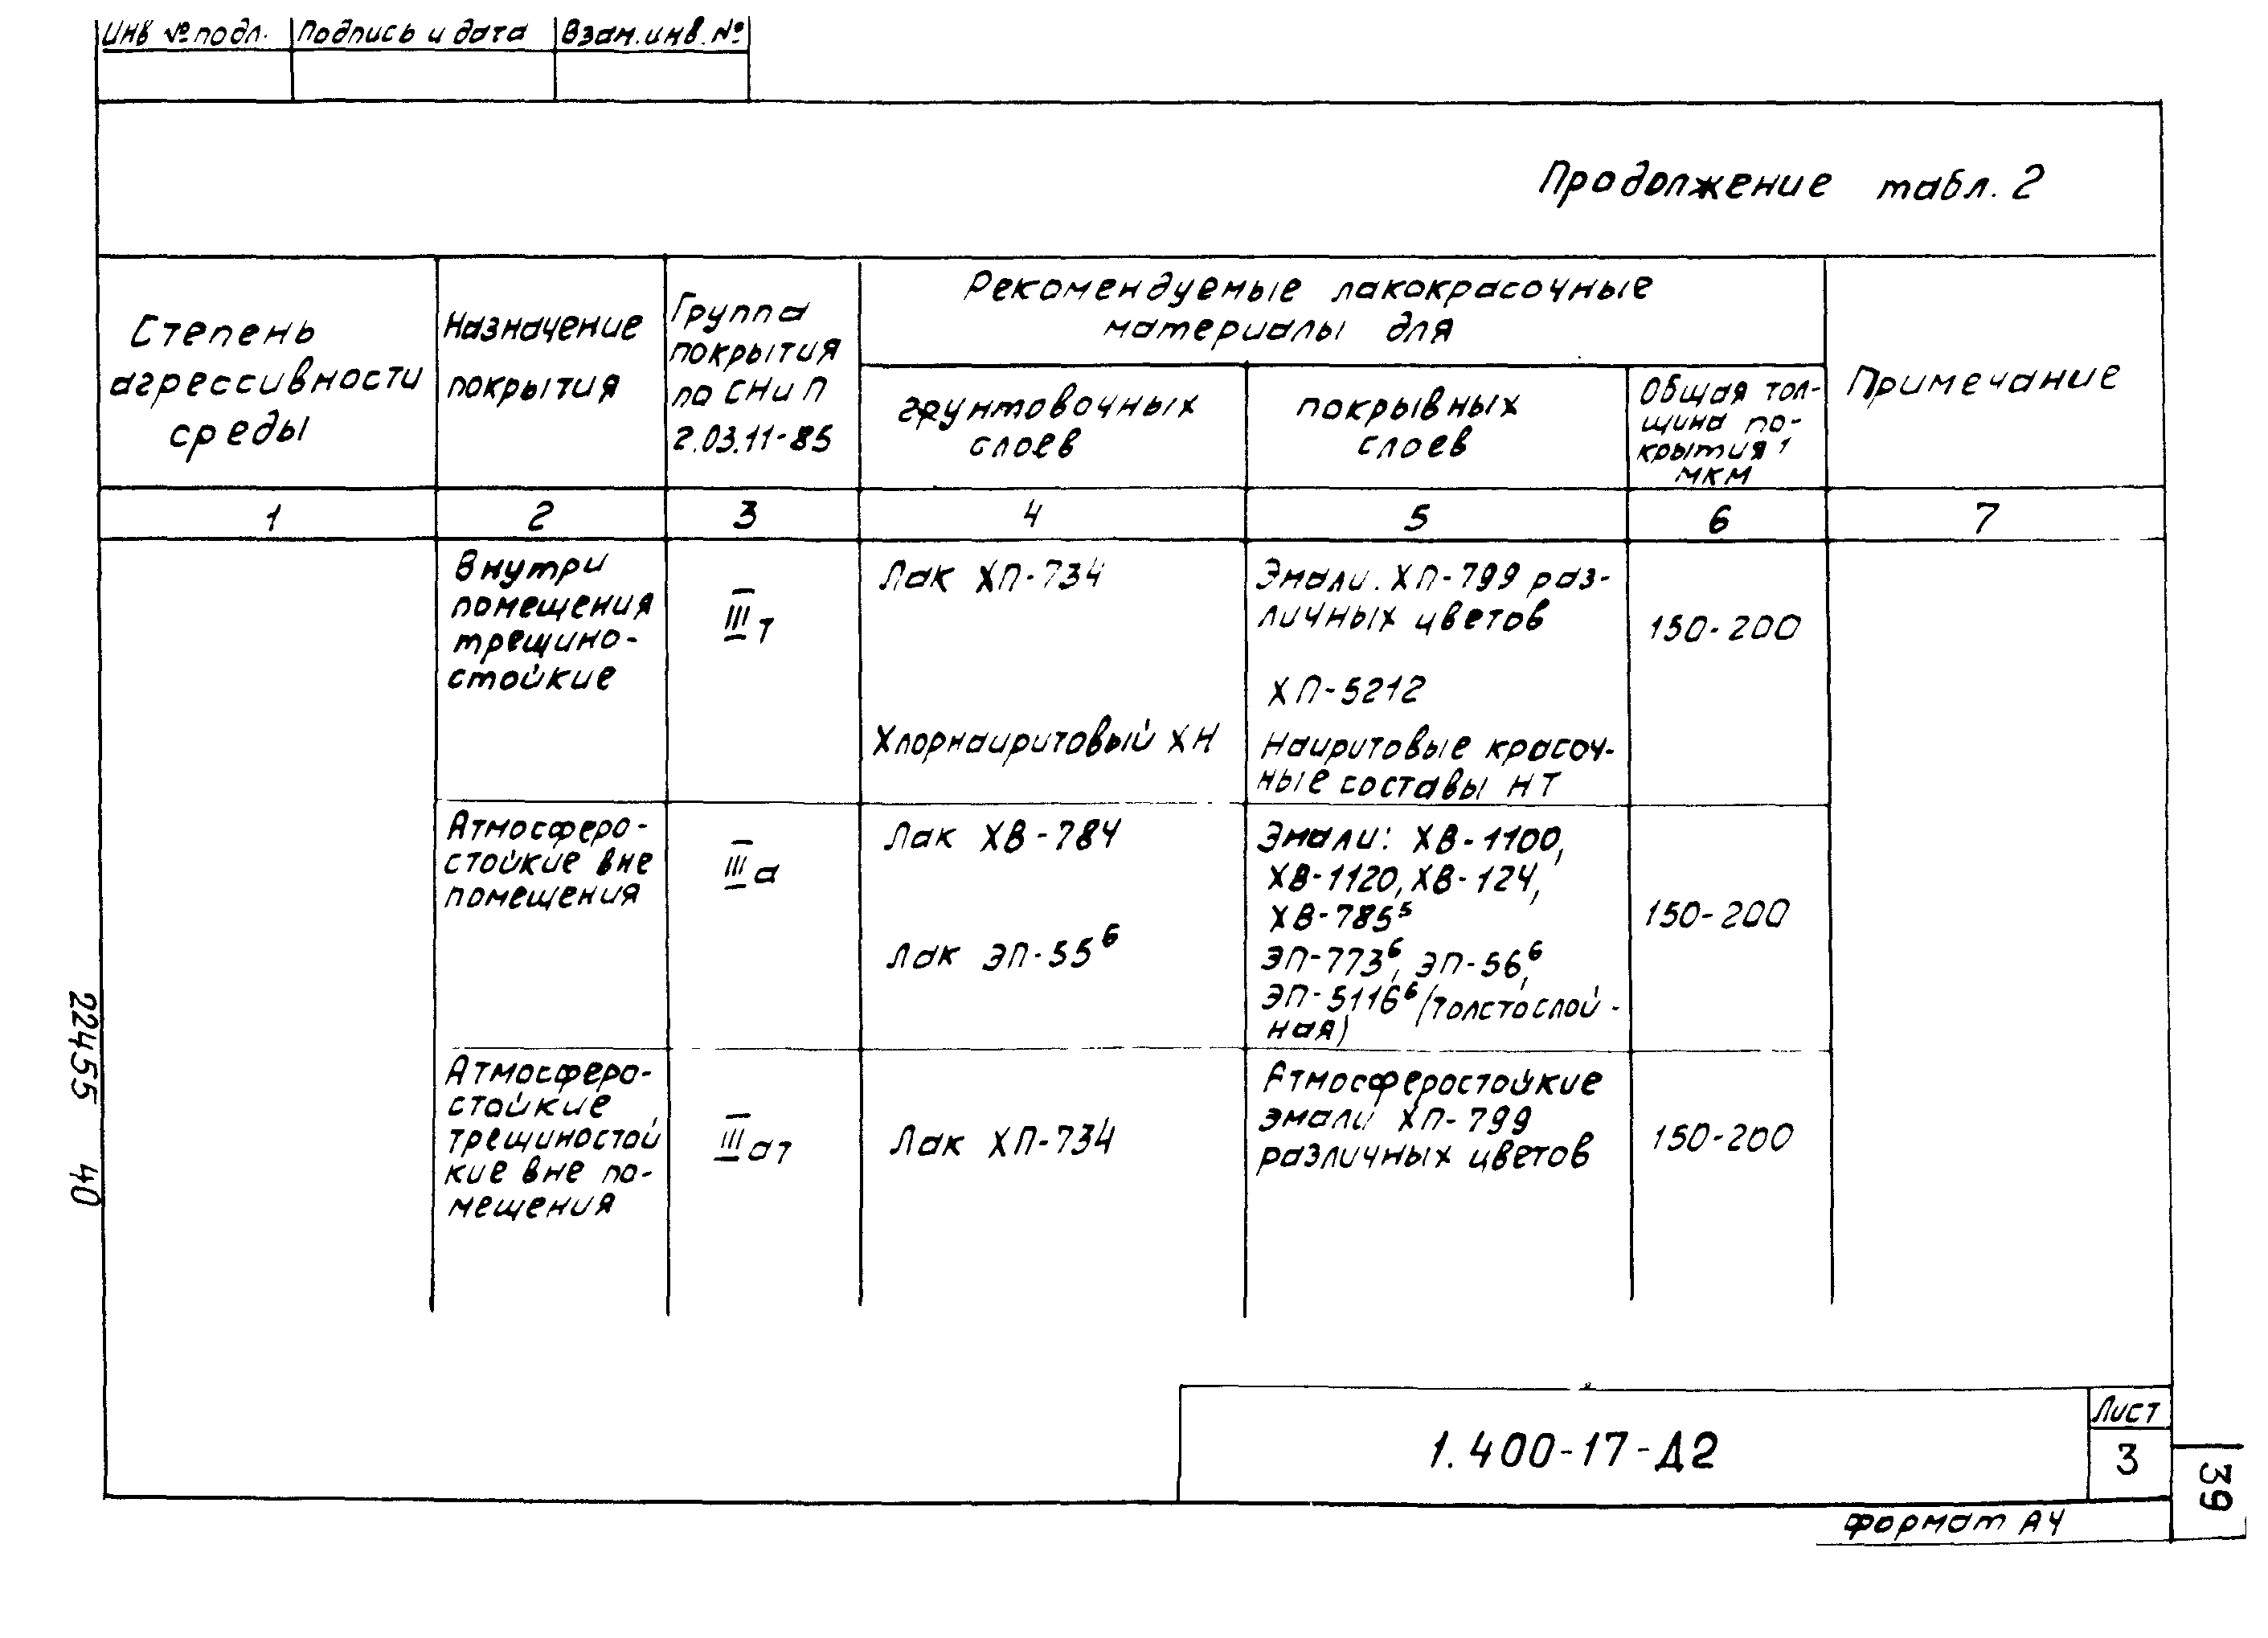 Инв № подл. Подпись и дата Взам. инв. №
Продолжение табл. 2
Степень
агрессивности
среды
Назначение
покрытия
Группа
покрытия
по СНиП
2.03.11-85
Рекомендуемые лакокрасочные
материалы для
грунтовочных
слоев
покрывных
слоев
Общая тол-
щина по-
крытия,
мкм
Примечание
1 2 3 4 5 6 7
Внутри
помещения
трещино-
стойкие
III т
Лак ХП-734
Хлорнаиритовый ХН
Эмали. ХП-799 раз-
личных цветов
ХП-5212
Наиритовые красоч-
ные составы НТ
150-200
Атмосферо-
стойкие вне
помещения
III а
Лак ХВ-784
Лак ЭП-55⁶
Эмали: ХВ-1100,
ХВ-1120, ХВ-124,
ХВ-785⁵
ЭП-773⁶, ЭП-56⁶,
ЭП-5116⁶ (толстослой-
ная)
150-200
Атмосферо-
стойкие
трещиностой
кие вне по-
мещения
III ат
Лак ХП-734
Атмосферостойкие
эмали ХП-799
различных цветов
150-200
22455 40
1.400-17-Д2
Лист
3
39
формат А4